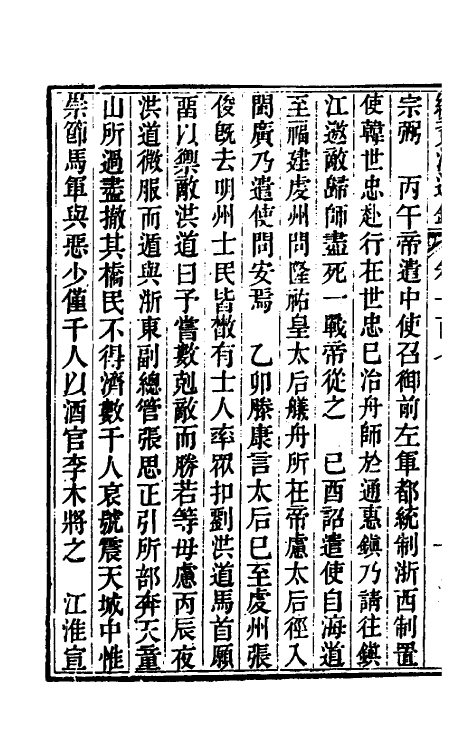 宗弼　丙午帝遣中使召御前左軍都統制浙西制置
使韓世忠赴行在世忠已治舟師於通惠鎮乃請往鎮
江邀敵歸師盡死一戰帝從之　己酉詔遣使自海道
至福建虔州問隆祐皇太后艤舟所在帝慮太后徑入
閩廣乃遣使問安焉　乙卯滕康言太后已至虔州張
俊旣去明州士民皆散有士人率眾扣劉洪道馬首願
畱以禦敵洪道曰予嘗數剋敵而勝若等毋慮丙辰夜
洪道微服而遁與浙東副總管張思正引所部奔天童
山所過盡撤其橋民不得濟數千人哀號震天城中惟
崇節馬軍與惡少僅千人以酒官李木將之　江淮宣